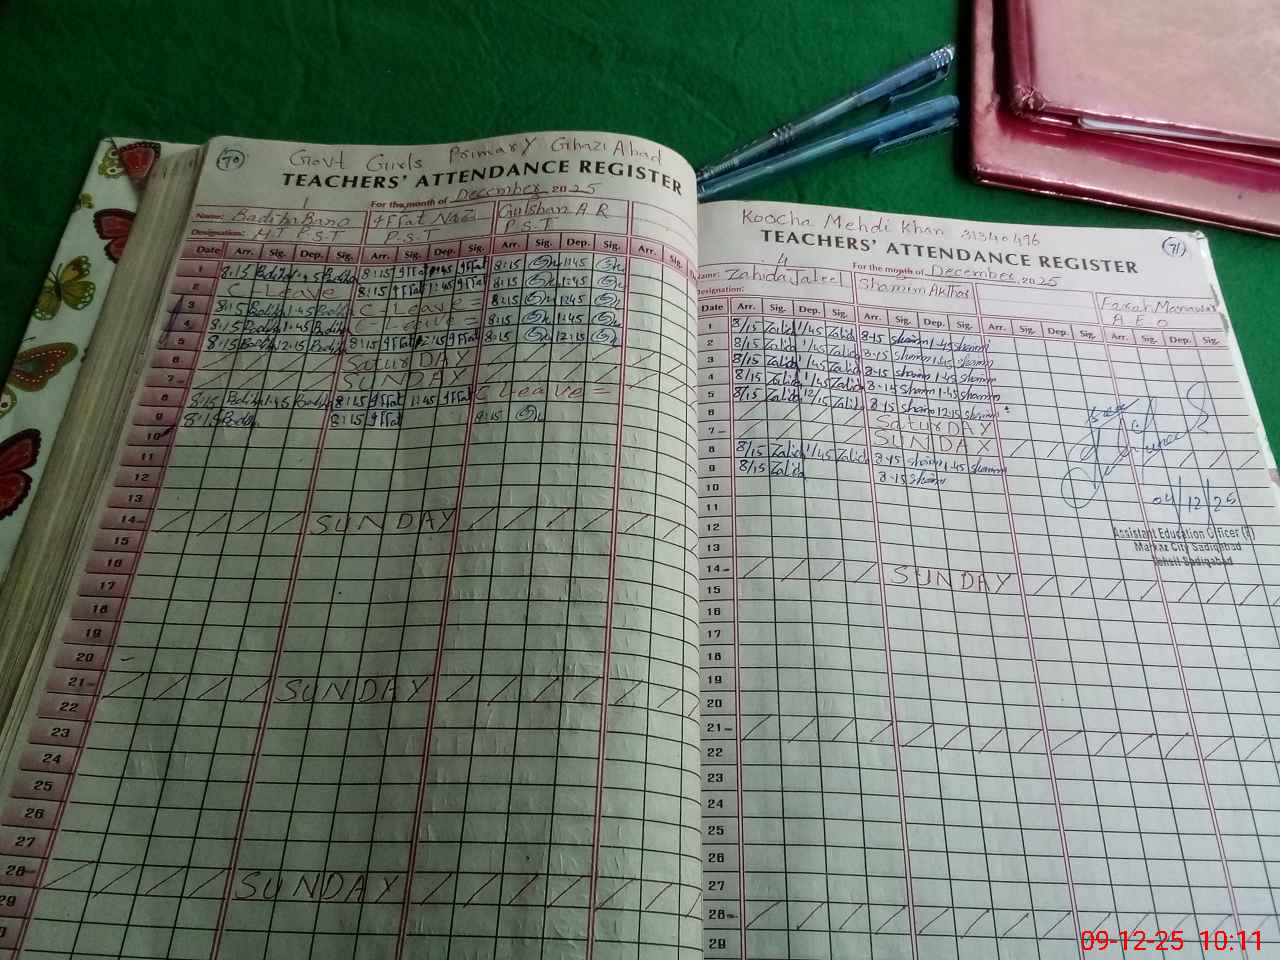 70
Govt Girls Primary Ghazi Abad
TEACHERS' ATTENDANCE REGISTER
For the month of December 2025
1
Name: Badiha Bano Iffat Naz Gulshan A R
Designation: HT P.S.T P.S.T P.S.T
Date Arr. Sig. Dep. Sig. Arr. Sig. Dep. Sig. Arr. Sig. Dep. Sig. Arr. Sig. Dep. Sig.
1 8:15 Badiha 1:45 Badiha 8:15 Iffat 1:45 Iffat 8:15 1:45
2 C Leave 8:15 Iffat 1:45 Iffat 8:15 1:45
3 8:15 Badiha 1:45 Badiha C Leave = 8:15 1:45
4 8:15 Badiha 1:45 Badiha C-Leave = 8:15 1:45
5 8:15 Badiha 12:15 Badiha 8:15 Iffat 12:15 Iffat 8:15 12:15
6 SaturDAY
7 SUNDAY
8 8:15 Badiha 1:45 Badiha 8:15 Iffat 1:45 Iffat C Leave =
9 8:15 Badiha 8:15 Iffat 8:15
10
11
12
13
14 SUNDAY
15
16
17
18
19
20
21 SUNDAY
22
23
24
25
26
27
28 SUNDAY
29
71
Koocha Mehdi Khan 31340476
TEACHERS' ATTENDANCE REGISTER
For the month of December 2025
4
Name: Zahida Jaleel Shamim Akthar
Designation: A E O
Date Arr. Sig. Dep. Sig. Arr. Sig. Dep. Sig. Arr. Sig. Dep. Sig. Arr. Sig. Dep. Sig.
1 8/15 Zahida 1/45 Zahida 8-15 Shamim 1-45 Shamim
2 8/15 Zahida 1/45 Zahida 8-15 Shamim 1-45 Shamim
3 8/15 Zahida 1/45 Zahida 8-15 Shamim 1-45 Shamim
4 8/15 Zahida 1/45 Zahida 8-15 Shamim 1-45 Shamim
5 8/15 Zahida 12/15 Zahida 8-15 Shamim 12-15 Shamim
6 SaturDAY
7 SUNDAY
8 8/15 Zahida 1/45 Zahida 8-15 Shamim 1-45 Shamim
9 8/15 Zahida 8-15 Shamim
10
11
12
13
14 SUNDAY
15
16
17
18
19
20
21
22
23
24
25
26
27
28
29
04/12/25
Assistant Education Officer (F)
Markaz City Sadiqabad
Tehsil Sadiqabad
09-12-25 10:11